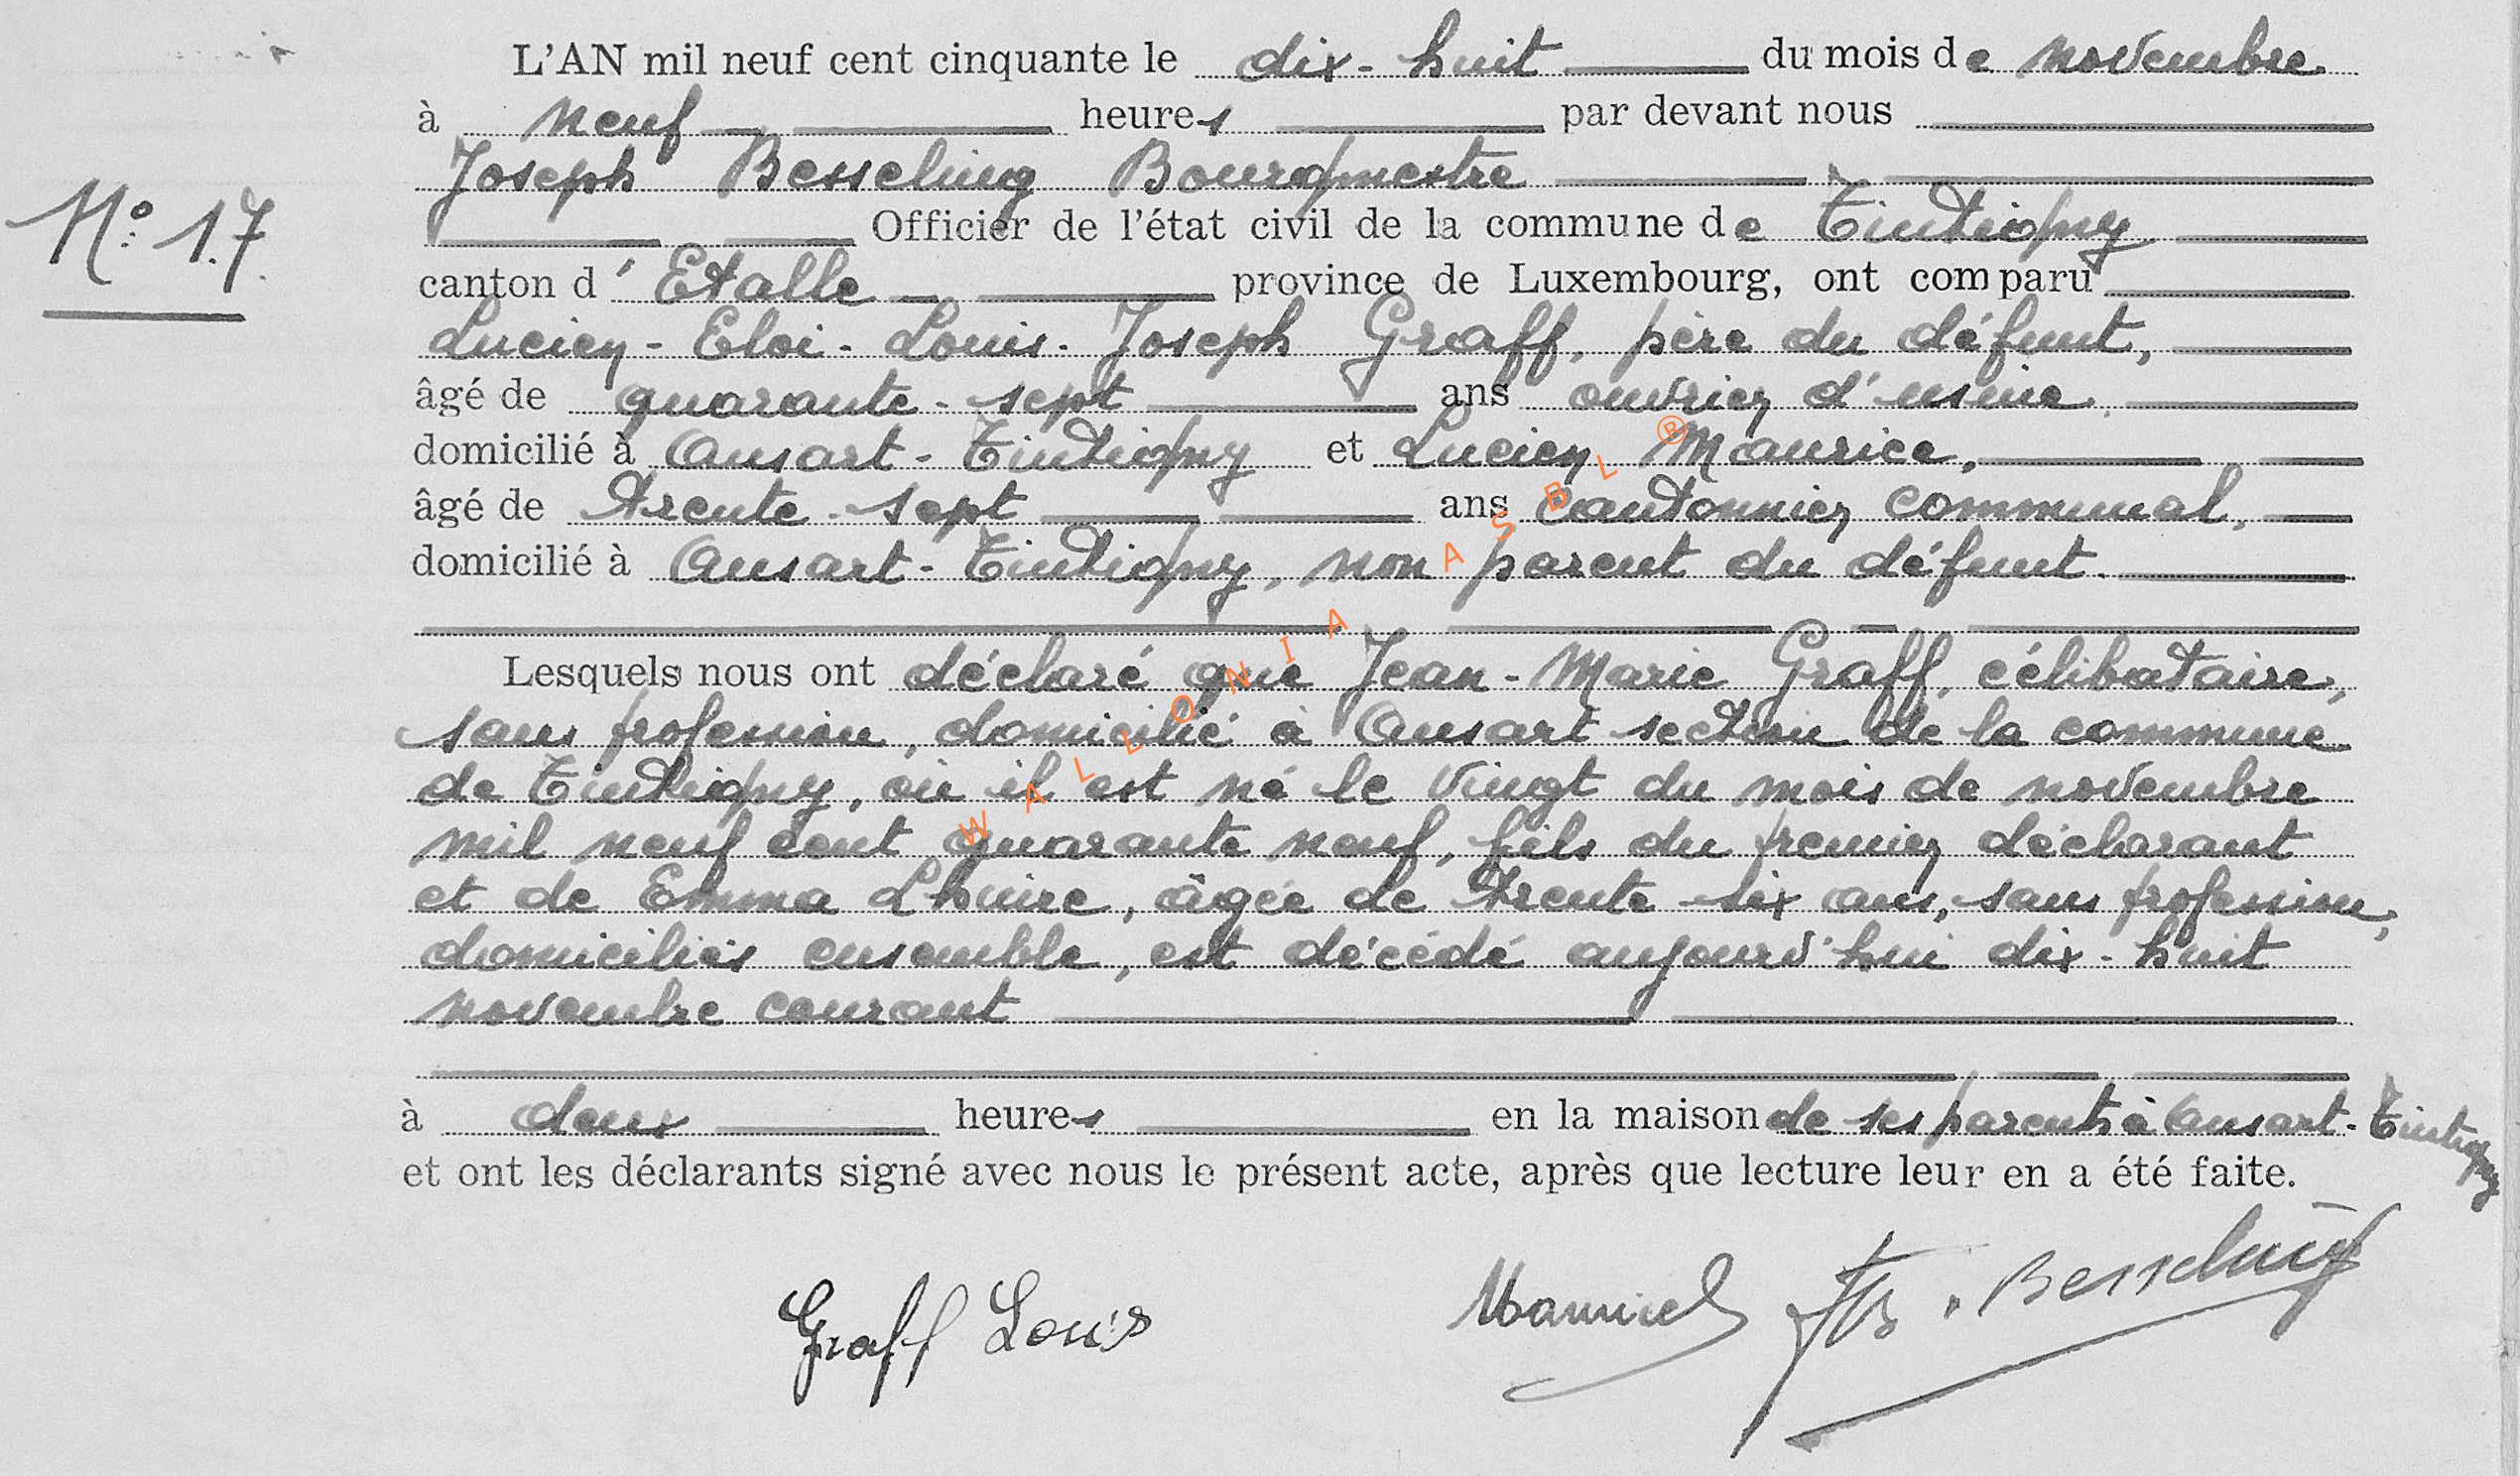 L'AN mil neuf cent cinquante le dix-huit du mois de novembre
à neuf heures par devant nous
Joseph Besseling Bourgmestre
N° 17.
Officier de l'état civil de la commune de Tintigny
canton d'Etalle province de Luxembourg, ont comparu
Lucien-Eloi-Louis-Joseph Graff, père du défunt,
âgé de quarante-sept ans ouvrier d'usine,
domicilié à Ansart-Tintigny et Lucien Maurice,
âgé de trente-sept ans cantonnier communal,
domicilié à Ansart-Tintigny, non parent du défunt.
Lesquels nous ont déclaré que Jean-Marie Graff, célibataire,
sans profession, domicilié à Ansart section de la commune
de Tintigny, où il est né le vingt du mois de novembre
mil neuf cent quarante neuf, fils du premier déclarant
et de Emma Lhuire, âgée de trente-six ans, sans profession,
domiciliés ensemble, est décédé aujourd'hui dix-huit
novembre courant
à deux heures en la maison de ses parents à Ansart-Tintigny
et ont les déclarants signé avec nous le présent acte, après que lecture leur en a été faite.
Graff Louis
Besseling
WALLONIA ASBL ®